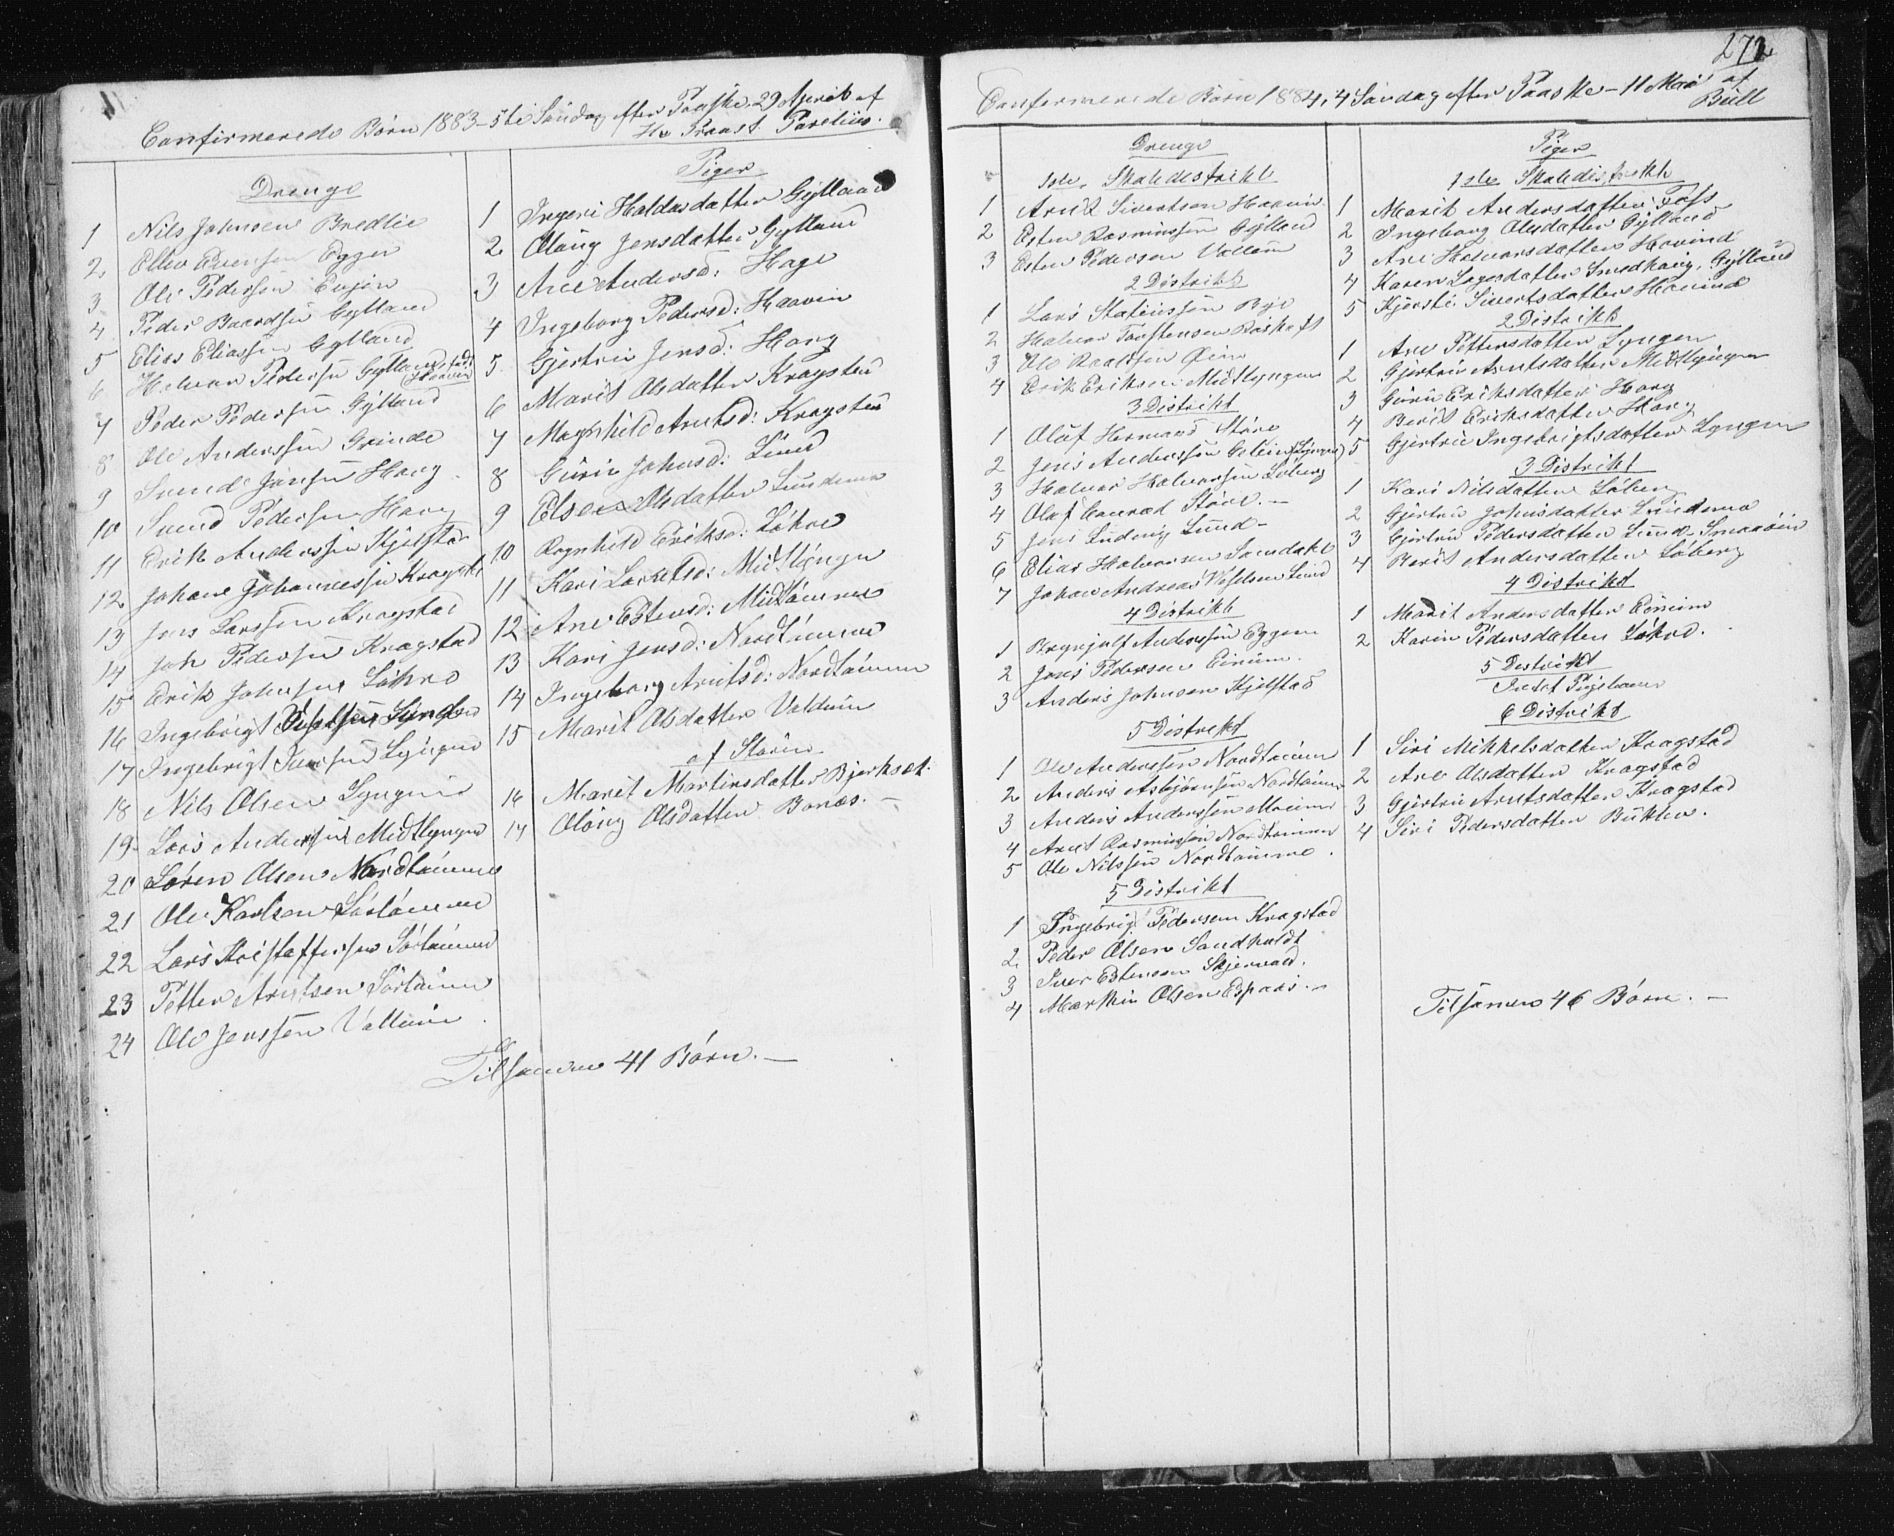 Confirmerede Børn 1883 - 5te Søndag efter Paaske, 29 April af
Hr Praast Parelius.
Drenge
1 Nils Johnsen Bredlie
2 Ellev Evensen Eggen
3 Ole Pedersen
4 Peder Baardsen Gylland
5 Elias Eliassen Gylland
6 Halvar Pedersen Gylland
7 Peder Pedersen Gylland
8 Ole Anderssen Grinde
9 Svend Jonsen Haug
10 Svend Pedersen Haug
11 Erik Anderssen Kjelstad
12 Johan Johannessen Kragstd
13 Jens Larssen Kragstad
14 Joh Pedersen Kragstad
15 Erik Johnsen Løhre
16 Ingebrigt
17 Ingebrigt Iversen Lyngen
18 Nils Olsen Lyngen
19 Lars Andersen Midtlyngen
20 Søren Olsen Nordtømme
21 Ole Karlsen Sørtømme
22 Lars Kristoffersen Sørtømme
23 Petter Arntsen Sørtømme
24 Ole Jenssen Valdum
Piger
1 Ingeri Haldosdatter Gylland
2 Olaug Jensdatter Gylland
3 Ane Andersd: Hage
4 Ingeborg Pedersd: Haavin
5 Gjertrü Jensd: Haug
6 Marit Olsdatter Kragstad
7 Magnhild Arntsd: Kragstad
8 Gurü Johnsd: Lund
9 Else Olsdatter Lundemo
10 Ragnhild Eriksd: Løhre
11 Kari Larsd: Midtlyngen
12 Ane Estensd: Midtømme
13 Kari Jensd: Nordtømme
14 Ingeborg Arntsd: Nordtømme
15 Marit Olsdatter Valdum
af Støren
16 Marit Martinsdatter Bjerkset
17 Olaug Olsdatter Bones. -
Tilsammen 41 Børn. -
272
Confirmerede Børn 1884, 4 Søndag efter Paaske - 11 Mai af
Büll
Drenge
1ste Skoledistrikt
1 Arnt Sivertsen Haavin
2 Esten Rasmussen Gylland
3 Esten Pedersen Valdum
2 Distrikt
1 Lars Bye
2 Halvar Torstensen
3 Ole Øien
4 Erik Eriksen Midtlyngen
3 Distrikt
1 Olaf Hermand Støre
2 Jens Anderssen
3 Halvor Halvorsen Løberg
4 Olaf Conrad Støre. -
5 Jens Ludvig Lund -
6 Elias Halvorsen
7 Johan Andreas Lund
4 Distrikt
1 Brynjulf Anderssen Eggen
2 Jens Pedersen Enum.
3 Anders Johnsen Kjelstad
5 Distrikt
1 Ole Anderssen Nordtømme
2 Anders Asbjørnsen Nordtømme
3 Anders Anderssen
4 Arnt Rasmussen Nordtømme
5 Ole Nilssen Nordtømme.
5 Distrikt
1 Ingebrigt Pedersen Kragstad
2 Peder Olsen Sandholdt
3 Iver Estensen Skjervold.
4 Marthin Olsen Espaas. -
Piger
1ste Skoledistrikt
1 Marit Andersdatter Foss
2 Ingeborg Olsdatter Gylland
3 Ane Halvorsdatter Havind
4 Karen Larsdatter Smedhaug, Gylland
5 Kjersti Sivertsdatter Haavind
2 Distrikt
1 Ane Pettersdatter Lyngen
2 Gjertrü Arntsdatter Midtlyngen
3 Gurü Eriksdatter Haug
4 Berit Eriksdatter Haug
5 Gjertrü Ingebrigtsdatter Lyngen
3 Distrikt
1 Kari Nilsdatter Løberg
2 Gjertrü Johnsdatter Lundemo
3 Gjertrü Pedersdatter Lund
4 Berit Andersdatter Løberg
4 Distrikt
1 Marit Andersdatter Enum
2 Karen Pedersdatter Løhre.
5 Distrikt
Intet Pigebarn
6 Distrikt
1 Siri Mikkelsdatter Kragstad
2 Ane Olsdatter Kragstad
3 Gjertrü Arntsdatter Kragstad
4 Siri Pedersdatter Buklen.
Tilsamen 46 Børn. -